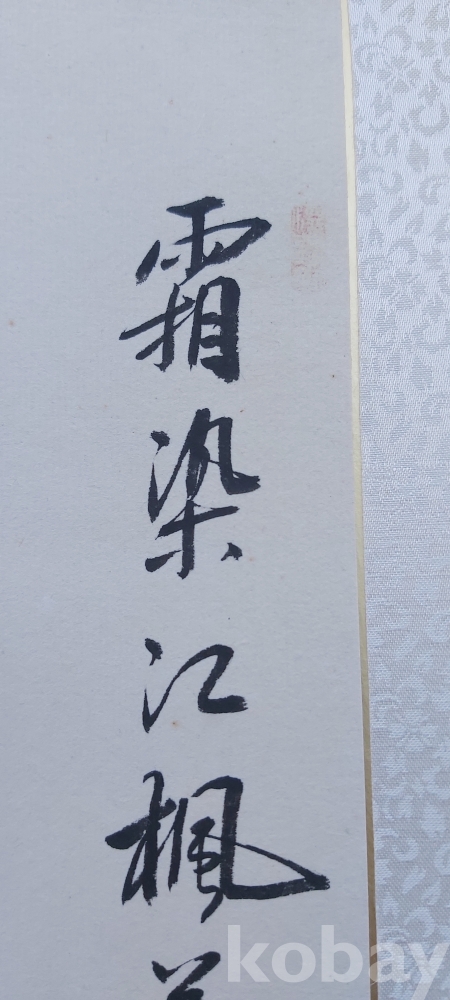 霜染江楓
kobay